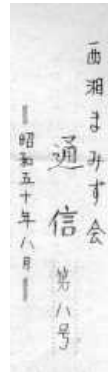 西湘まみず会
通信 第八号
昭和五十年八月